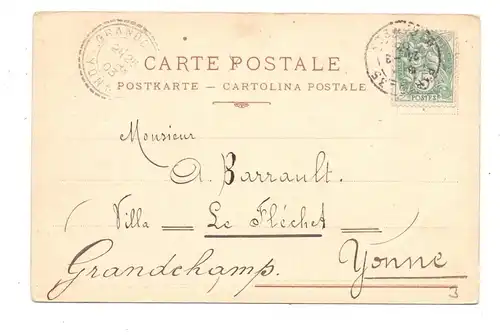 GRANDE
CARTE POSTALE
POSTKARTE — CARTOLINA POSTALE
POSTES
Monsieur
A. Barrault.
Villa = Le Fléchet =
Grandchamp. Yonne
3